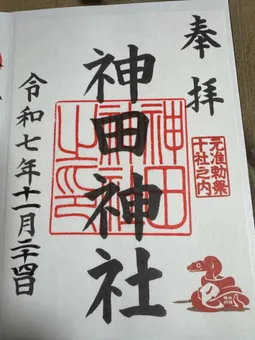 奉拝
元准勅祭
十社之内
神田神社
神田
神社
之印
令和七年十一月二十四日